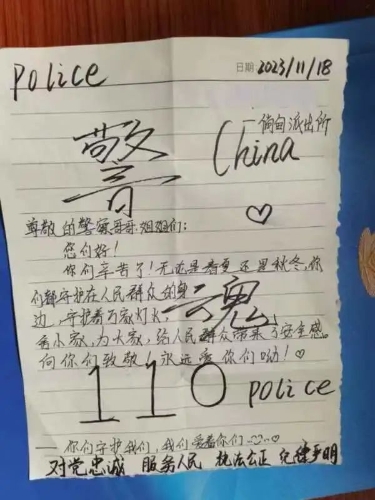 police
日期: 2023/11/18
警
China
一倘甸派出所
尊敬的警察哥哥姐姐们:
您们好!
你们辛苦了!无论是春夏还是秋冬,你
们都守护在人民群众的身
边,守护着万家灯火
魂
舍小家,为大家,给人民群众带来了安全感。
向你们致敬!永远爱你们呦!♡
110 police
——你们守护我们,我们爱着你们~♡~
对党忠诚 服务人民 执法公正 纪律严明